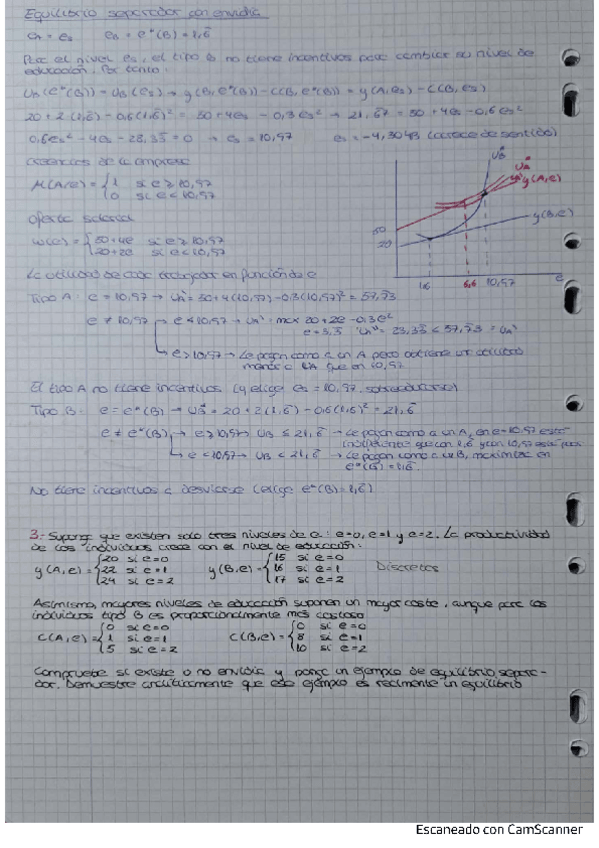 Equilibrio separador con envidia
eA = es   eB = e*(B) = 1,6̄
Por el nivel es, el tipo B no tiene incentivos para cambiar su nivel de
educación. Por tanto:
UB(e*(B)) = UB(es) → y(B, e*(B)) - C(B, e*(B)) = y(A, es) - C(B, es)
20 + 2(1,6̄) - 0,6(1,6̄)² = 30 + 4es - 0,3es² → 21,67 = 30 + 4es - 0,6es²
0,6es² - 4es - 28,33 = 0 → es = 10,97   es = -4,3043 (carece de sentido)
Creencias de la empresa
μ(A/e) = { 1 si e ≥ 10,97
0 si e < 10,97
Oferta salarial
w(e) = { 30+4e si e ≥ 10,97
20+2e si e < 10,97
UB
UA
y(A,e)
y(B,e)
30
20
1,6
6,6
10,97
e
La utilidad de cada trabajador en función de e
Tipo A: e = 10,97 → UA = 30 + 4(10,97) - 0,3(10,97)² = 37,73
e ≠ 10,97 → e < 10,97 → UA' = max 20 + 2e - 0,3e²
e = 3,3̄   UA' = 23,33 < 37,73 = UA
e > 10,97 → Le pagan como a un A pero obtiene una utilidad
menor a la que en 10,97
El tipo A no tiene incentivos (y elige es = 10,97, sobreeducarse)
Tipo B: e = e*(B) → UB = 20 + 2(1,6̄) - 0,6(1,6̄)² = 21,6̄
e ≠ e*(B) → e ≥ 10,97 → UB ≤ 21,6̄ → Le pagan como a un A, en e=10,97 está
indiferente que con 1,6̄ y con 10,97 está
e < 10,97 → UB < 21,6̄ → Le pagan como a un B, maximiza en
e*(B) = 1,6̄
No tiene incentivos a desviarse (elige e*(B) = 1,6̄)
3.- Supongo que existen solo tres niveles de e: e=0, e=1 y e=2. La productividad
de los individuos crece con el nivel de educación:
y(A,e) = { 20 si e=0   y(B,e) = { 15 si e=0
22 si e=1   16 si e=1   Discretos
24 si e=2   17 si e=2
Asimismo, mayores niveles de educación suponen un mayor coste, aunque para los
individuos tipo B es proporcionalmente más costoso
C(A,e) = { 0 si e=0   C(B,e) = { 0 si e=0
1 si e=1   8 si e=1
5 si e=2   10 si e=2
Compruebe si existe o no envidia y ponga un ejemplo de equilibrio separa-
dor. Demuestre analíticamente que ese ejemplo es realmente un equilibrio
Escaneado con CamScanner